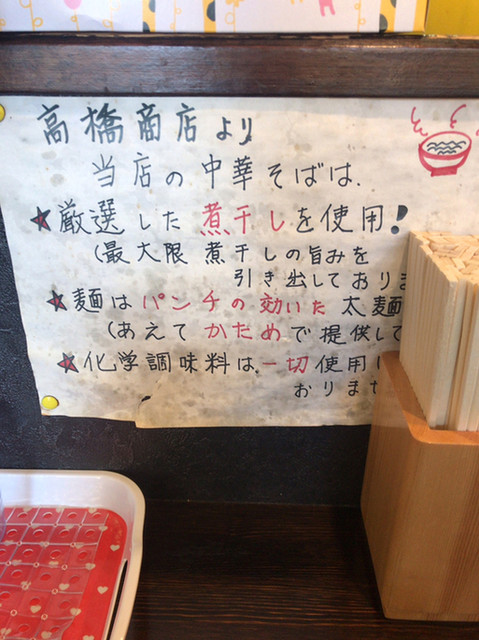 高橋商店より
当店の中華そばは、
★厳選した煮干しを使用!
(最大限煮干しの旨みを
引き出しておりま
★麺はパンチの効いた太麺
(あえてかためで提供して
★化学調味料は、一切使用し
おりませ